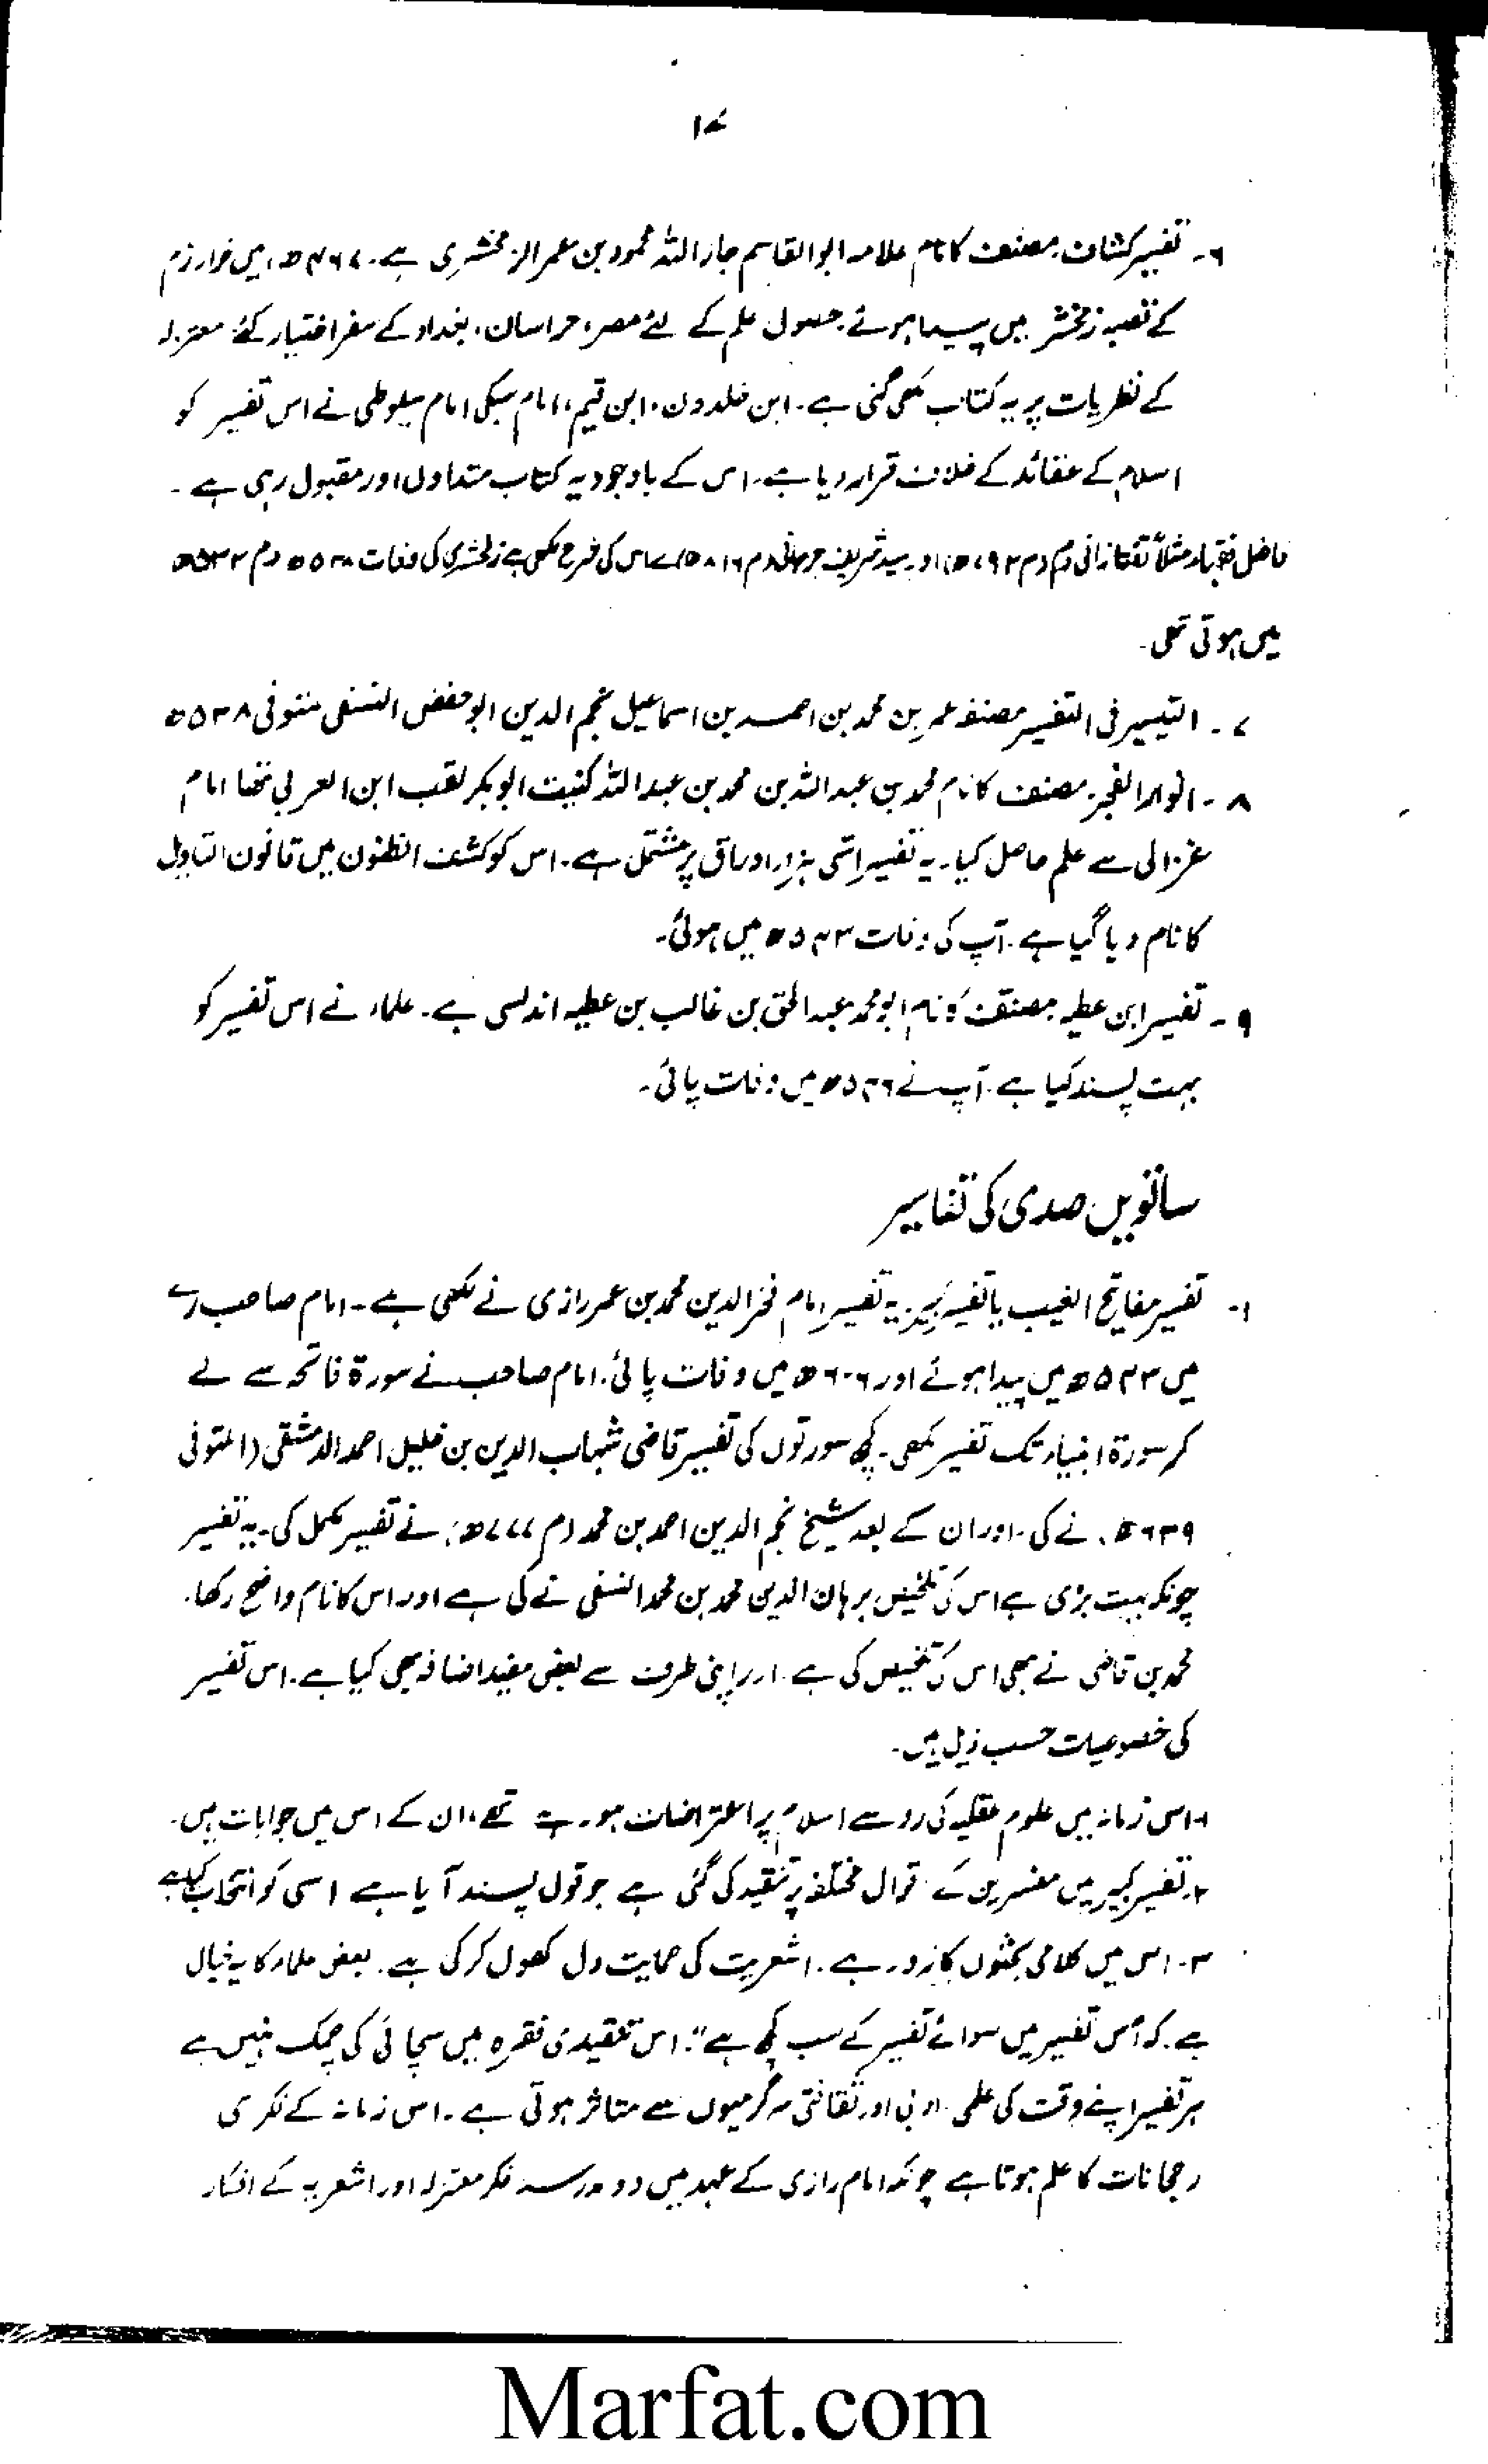 ۱۷
۶۔ تفسیر کشاف۔ مصنف کا نام علامہ ابوالقاسم جار اللہ محمود بن عمر الزمخشری ہے۔ ۴۶۷ھ، میں خوارزم
کے قصبہ زمخشر میں پیدا ہوئے۔ حصول علم کے لئے مصر، خراسان، بغداد کے سفر اختیار کئے معتزلہ
کے نظریات پر یہ کتاب لکھی گئی ہے۔ ابن خلدون، ابن قیم، امام سبکی امام سیوطی نے اس تفسیر کو
اسلام کے عقائد کے خلاف قرار دیا ہے۔ اس کے باوجود یہ کتاب متداول اور مقبول رہی ہے۔
فاضل فقہاء مثلاً تفتازانی (م ۷۹۲ھ) اور سید شریف جرجانی (م ۸۱۶ھ) نے اس کی شرح لکھی ہے زمخشری کی وفات ۵۳۸ھ
میں ہوئی تھی۔
۷۔ التیسیر فی التفسیر مصنفہ عمر بن محمد بن احمد بن اسماعیل نجم الدین ابو حفض النسفی متوفی ۵۳۸ھ
۸۔ انوار الفجر: مصنف کا نام محمد بن عبد اللہ بن محمد بن عبد اللہ کنیت ابوبکر لقب ابن العربی تھا امام
غزالی سے علم حاصل کیا۔ یہ تفسیر اسّی ہزار اوراق پر مشتمل ہے۔ اس کو کشف الظنون میں قانون التاویل
کا نام دیا گیا ہے۔ آپ کی وفات ۵۴۳ھ میں ہوئی۔
۹۔ تفسیر ابن عطیہ مصنف کا نام ابو محمد عبد الحق بن غالب بن عطیہ اندلسی ہے۔ علماء نے اس تفسیر کو
بہت پسند کیا ہے۔ آپ نے ۵۴۶ھ میں وفات پائی۔
ساتویں صدی کی تفاسیر
۱۔ تفسیر مفاتیح الغیب یا تفسیر کبیر: یہ تفسیر امام فخر الدین محمد بن عمر رازی نے لکھی ہے۔ امام صاحب رے
میں ۵۴۳ھ میں پیدا ہوئے اور ۶۰۶ھ میں وفات پائی۔ امام صاحب نے سورۃ فاتحہ سے لے
کر سورۃ انبیاء تک تفسیر لکھی۔ کچھ سورتوں کی تفسیر قاضی شہاب الدین بن خلیل احمد الدمشقی (المتوفی
۶۳۹ھ) نے کی۔ اور ان کے بعد شیخ نجم الدین احمد بن محمد (م ۷۷۷ھ) نے تفسیر مکمل کی۔ یہ تفسیر
چونکہ بہت بڑی ہے اس کی تلخیص برہان الدین محمد بن محمد النسفی نے کی ہے اور اس کا نام واضح رکھا۔
محمد بن قاضی نے بھی اس کی تلخیص کی ہے۔ اور اپنی طرف سے بعض مفید اضافہ بھی کیا ہے۔ اس تفسیر
کی خصوصیات حسب ذیل ہیں۔
۱۔ اس زمانہ میں علوم عقلیہ کی رو سے اسلام پر اعتراضات ہو رہے تھے، ان کے اس میں جوابات ہیں۔
۲۔ تفسیر کبیر میں مفسرین کے اقوال مختلفہ پر تنقید کی گئی ہے جو قول پسند آیا ہے اسی کو انتخاب کیا ہے
۳۔ اس میں کلامی بحثوں کا زور ہے۔ اشعریت کی حمایت دل کھول کر کی ہے۔ بعض علماء کا یہ خیال
ہے۔ کہ "اس تفسیر میں سوائے تفسیر کے سب کچھ ہے"۔ اس تنقیدی فقرہ میں سچائی کی چمک نہیں ہے
ہر تفسیر اپنے وقت کی علمی، ادبی اور ثقافتی سرگرمیوں سے متاثر ہوتی ہے۔ اس زمانہ کے فکری
رجحانات کا علم ہوتا ہے چونکہ امام رازی کے عہد میں دو مدرسہ فکر معتزلہ اور اشعریہ کے افکار
Marfat.com